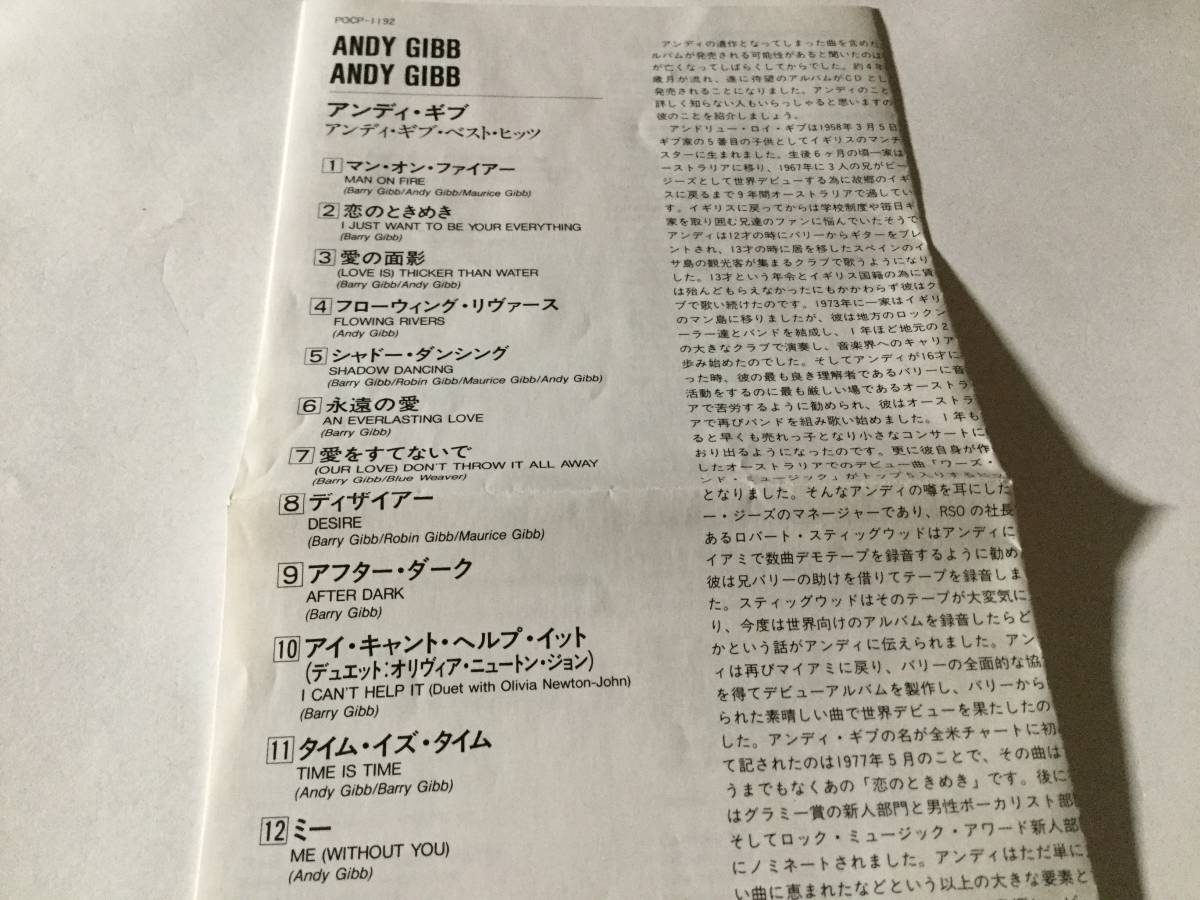 POCP-1192
ANDY GIBB
ANDY GIBB
アンディ・ギブ
アンディ・ギブ・ベスト・ヒッツ
1 マン・オン・ファイアー
MAN ON FIRE
(Barry Gibb/Andy Gibb/Maurice Gibb)
2 恋のときめき
I JUST WANT TO BE YOUR EVERYTHING
(Barry Gibb)
3 愛の面影
(LOVE IS) THICKER THAN WATER
(Barry Gibb/Andy Gibb)
4 フローウィング・リヴァース
FLOWING RIVERS
(Andy Gibb)
5 シャドー・ダンシング
SHADOW DANCING
(Barry Gibb/Robin Gibb/Maurice Gibb/Andy Gibb)
6 永遠の愛
AN EVERLASTING LOVE
(Barry Gibb)
7 愛をすてないで
(OUR LOVE) DON'T THROW IT ALL AWAY
(Barry Gibb/Blue Weaver)
8 ディザイアー
DESIRE
(Barry Gibb/Robin Gibb/Maurice Gibb)
9 アフター・ダーク
AFTER DARK
(Barry Gibb)
10 アイ・キャント・ヘルプ・イット
(デュエット:オリヴィア・ニュートン・ジョン)
I CAN'T HELP IT (Duet with Olivia Newton-John)
(Barry Gibb)
11 タイム・イズ・タイム
TIME IS TIME
(Andy Gibb/Barry Gibb)
12 ミー
ME (WITHOUT YOU)
(Andy Gibb)
アンディの遺作となってしまった曲を含めた
ルバムが発売される可能性があると聞いたのは
が亡くなってしばらくしてからでした。約4年
歳月が流れ、遂に待望のアルバムがCDとし
発売されることになりました。アンディのこと
詳しく知らない人もいらっしゃると思いますの
彼のことを紹介しましょう。
アンドリュー・ロイ・ギブは1958年3月5日
ギブ家の5番目の子供としてイギリスのマンチ
スターに生まれました。生後6ヶ月の頃一家は
ーストラリアに移り、1967年に3人の兄がビー
ジーズとして世界デビューする為に故郷のイギ
スに戻るまで9年間オーストラリアで過してい
す。イギリスに戻ってからは学校制度や毎日ギ
家を取り囲む兄達のファンに悩んでいたそうで
アンディは12才の時にバリーからギターをプレ
ントされ、13才の時に居を移したスペインのイ
サ島の観光客が集まるクラブで歌うようになり
した。13才という年令とイギリス国籍の為に賃
は殆んどもらえなかったにもかかわらず彼はク
ブで歌い続けたのです。1973年に一家はイギリ
のマン島に移りましたが、彼は地方のロックン
ーラー達とバンドを結成し、1年ほど地元の2
の大きなクラブで演奏し、音楽界へのキャリア
歩み始めたのでした。そしてアンディが16才に
った時、彼の最も良き理解者であるバリーに音
活動をするのに最も厳しい場であるオーストラ
アで苦労するように勧められ、彼はオーストラ
アで再びバンドを組み歌い始めました。1年も
ると早くも売れっ子となり小さなコンサートに
おり出るようになったのです。更に彼自身が作
したオーストラリアでのデビュー曲「ワーズ・
ンド・ミュージック」がトップ5入りする
となりました。そんなアンディの噂を耳にした
ー・ジーズのマネージャーであり、RSOの社長
あるロバート・スティッグウッドはアンディに
イアミで数曲デモテープを録音するように勧め
彼は兄バリーの助けを借りてテープを録音しま
た。スティッグウッドはそのテープが大変気に
り、今度は世界向けのアルバムを録音したらど
かという話がアンディに伝えられました。アン
ィは再びマイアミに戻り、バリーの全面的な協
を得てデビューアルバムを製作し、バリーから
られた素晴しい曲で世界デビューを果たしたの
した。アンディ・ギブの名が全米チャートに初
て記されたのは1977年5月のことで、その曲は
うまでもなくあの「恋のときめき」です。後に
はグラミー賞の新人部門と男性ボーカリスト部
そしてロック・ミュージック・アワード新人部
にノミネートされました。アンディはただ単に
い曲に恵まれたなどという以上の大きな要素と